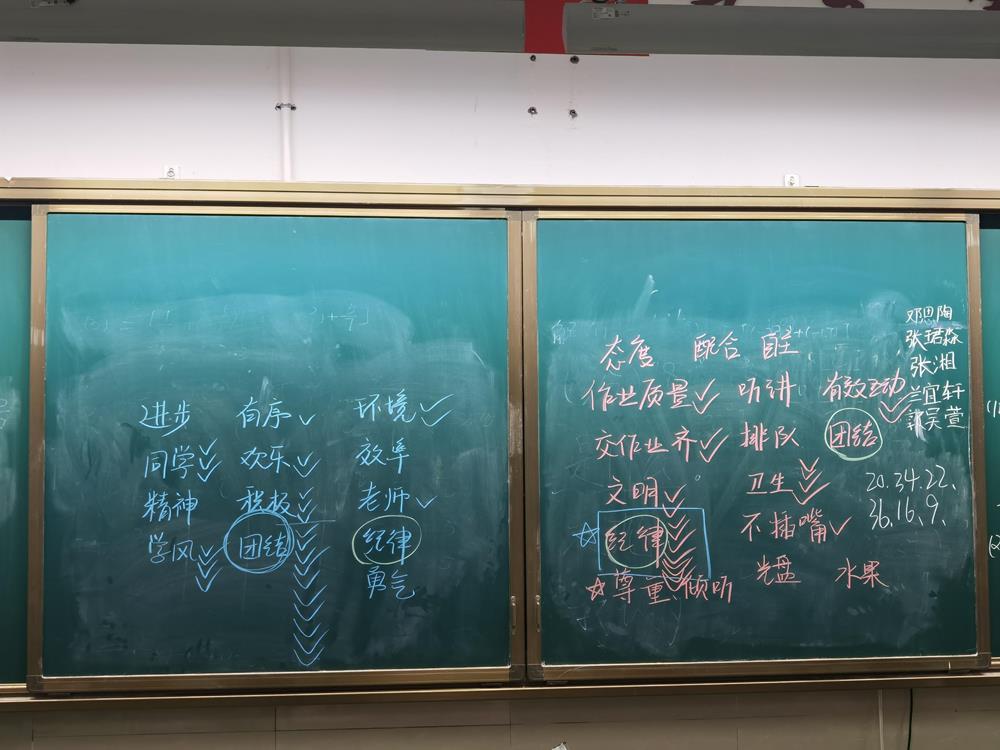 进步 有序 环境
同学 欢乐 效率
精神 积极 老师
学风 团结 纪律
勇气
态度 配合 自主
作业质量 听讲 有效互动
交作业齐 排队 团结
文明 卫生
纪律 不插嘴
尊重、倾听 光盘 水果
邓思陶
张珺淼
张湘
兰宜轩
郭吴萱
20.34.22、
36.16.9、